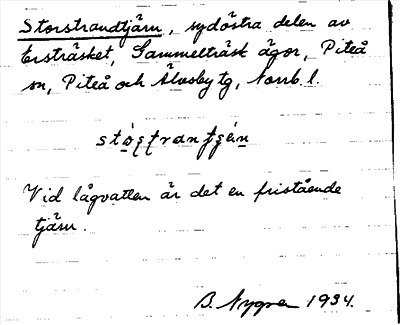 Storstrandtjärn, sydöstra delen av
Ersträsket, Gammelträsk ägor, Piteå
sn, Piteå och Älvsby tg, Norrb. l.
Vid lågvatten är det en fristående
tjärn.
B. Nygren 1934.